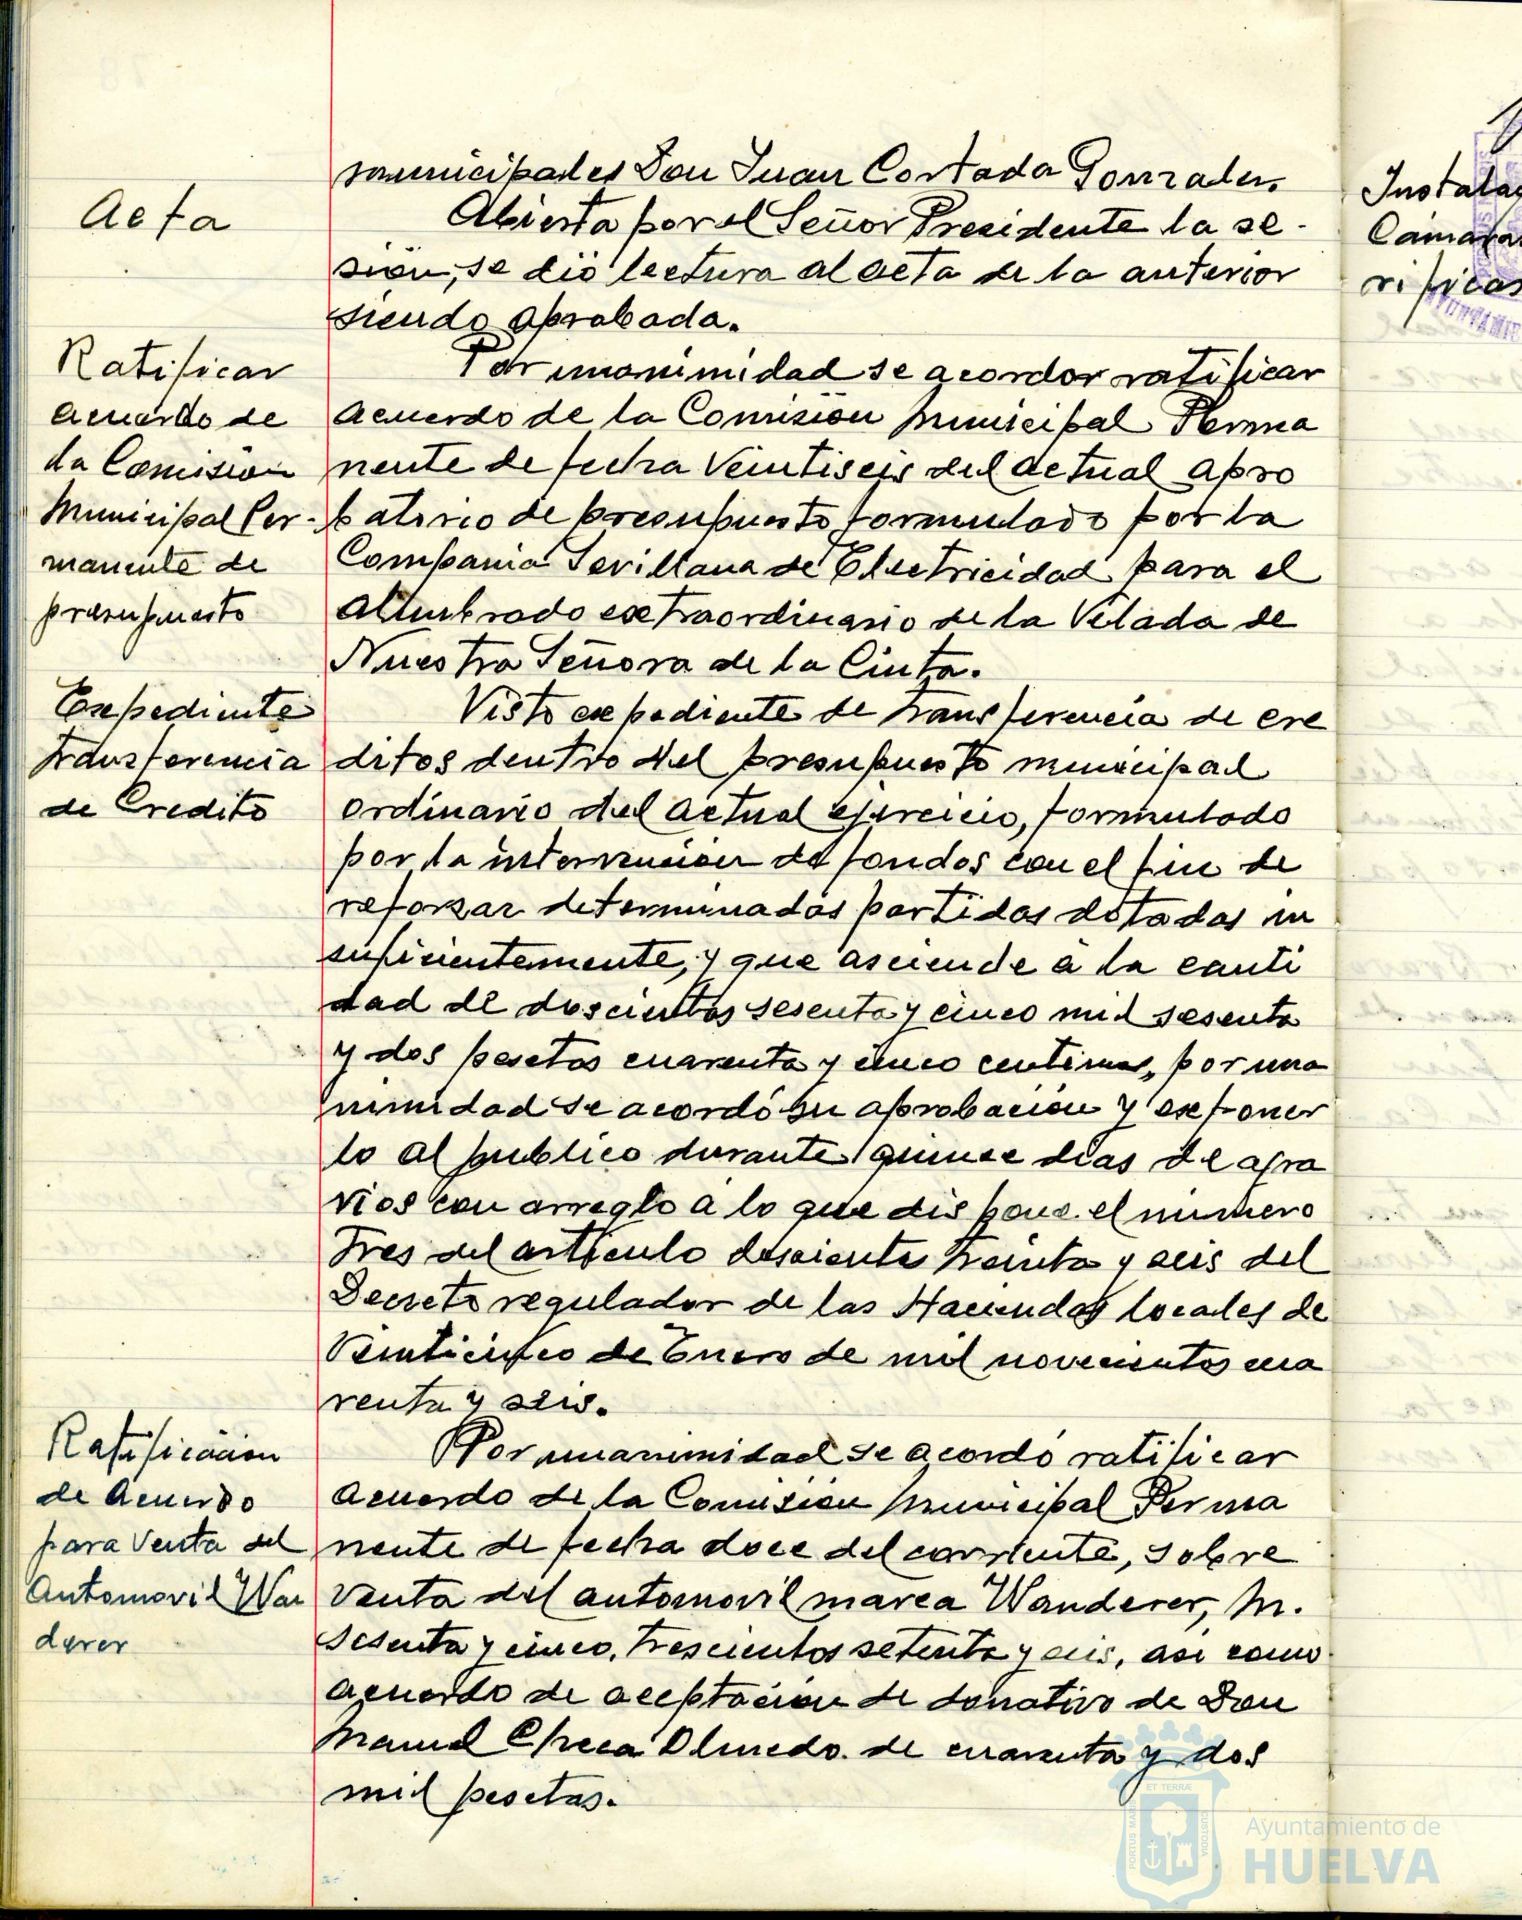 municipales Don Juan Cortada Gonzalez.
Acta
Abierta por el Señor Presidente la se-
sión, se dió lectura al acta de la anterior
siendo aprobada.
Ratificar
acuerdo de
la Comisión
Municipal Per-
manente de
presupuesto
Por unanimidad se acordor ratificar
acuerdo de la Comision Municipal Perma
nente de fecha veintiseis del actual apro
batorio de presupuesto formulado por la
Compania Sevillana de Electricidad para el
alumbrado extraordinario de la Velada de
Nuestra Señora de la Cinta.
Expediente
transferencia
de Credito
Visto expediente de transferencia de cre
ditos dentro del presupuesto municipal
ordinario del actual ejercicio, formulado
por la intervencion de fondos con el fin de
reforzar determinadas partidas dotadas in
suficientemente, y que asciende a la canti
dad de doscientas sesenta y cinco mil sesenta
y dos pesetas cuarenta y cinco centimos, por una
nimidad se acordó su aprobacion y exponer
lo al publico durante quince dias de agra
vios con arreglo a lo que dispone el numero
tres del articulo doscientos treinta y seis del
Decreto regulador de las Haciendas locales de
Veinticinco de Enero de mil novecientos cua
renta y seis.
Ratificación
de Acuerdo
para Venta del
Automovil Wan
derer
Por unanimidad se acordó ratificar
acuerdo de la Comision Municipal Perma
nente de fecha doce del corriente, sobre
venta del automovil marca Wanderer, M.
sesenta y cinco, trescientos setenta y seis, asi como
acuerdo de aceptacion de donativo de Don
Manuel Checa Olmedo de cuarenta y dos
mil pesetas.
Instalac
Cámaras
rificas
Ayuntamiento de
HUELVA
PORTUS MARIS
ET TERRÆ
CUSTODIA